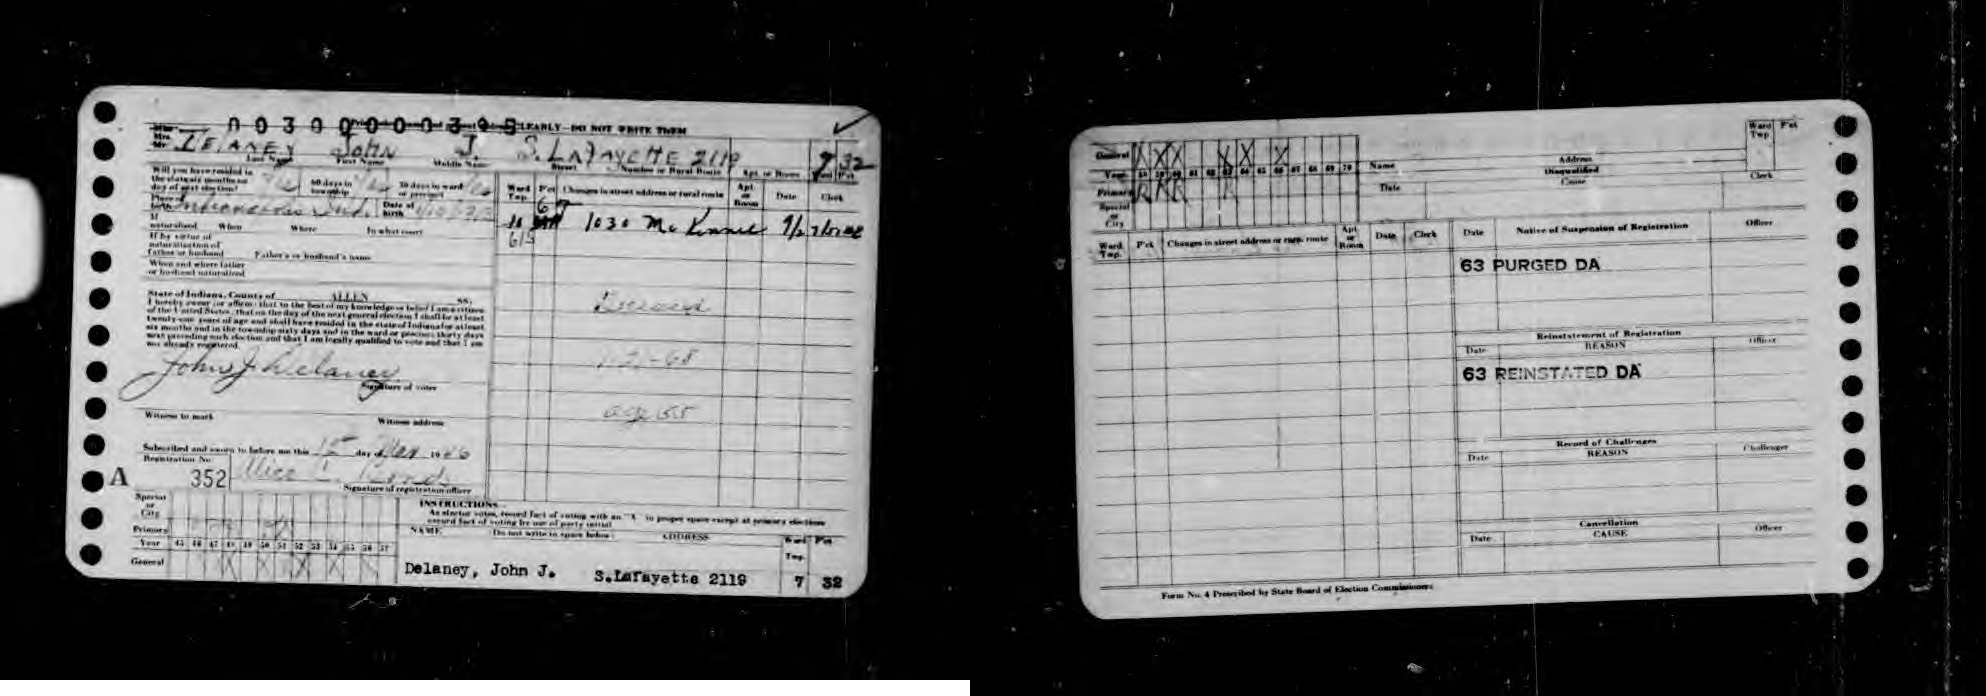 0030000039
CLEARLY—DO NOT WRITE THEM
Miss
Mrs.
Mr.
DELANEY JOHN J. S. LAFAYETTE 2119 7 32
Last Name First Name Middle Name Street Number or Rural Route Apt. or Room Ward P'ct
Will you have resided in the state six months on day of next election?
60 days in township
30 days in ward or precinct
Place of birth Indianapolis Ind. Date of birth
If naturalized When Where In what court
If by virtue of naturalization of father or husband Father's or husband's name
When and where father or husband naturalized
State of Indiana, County of ALLEN SS:
I hereby swear (or affirm) that to the best of my knowledge or belief I am a citizen
of the United States, that on the day of the next general election I shall be at least
twenty-one years of age and shall have resided in the state of Indiana for at least
six months and in the township sixty days and in the ward or precinct thirty days
next preceding such election and that I am legally qualified to vote and that I am
not already registered.
John J Delaney
Signature of voter
Witness to mark Witness address
Subscribed and sworn to before me this day of 19 46
Registration No.
A 352 Alice C.
Signature of registration officer
Ward Twp. P'ct Changes in street address or rural route Apt. or Room Date Clerk
10 1030 McKinnie
615
Deceased
1-21-68
age
Special or City
Primary
Year 45 46 47 48 49 50 51 52 53 54 55 56 57
General X X X X X
INSTRUCTIONS
As elector votes, record fact of voting with an "X" in proper space except at primary elections
record fact of voting by use of party initial
NAME (Do not write in space below) ADDRESS Ward Twp. P'ct
Delaney, John J. S.Lafayette 2119 7 32
General X X X X X X
Year 58 59 60 61 62 63 64 65 66 67 68 69 70
Primary R R R R
Special or City
Name Address Ward Twp. P'ct
Disqualified
Date Cause Clerk
Ward Twp. P'ct Changes in street address or rural route Apt. or Room Date Clerk
Date Notice of Suspension of Registration Officer
63 PURGED DA
Reinstatement of Registration
Date REASON Officer
63 REINSTATED DA
Record of Challenges
Date REASON Challenger
Cancellation
Date CAUSE Officer
Form No. 4 Prescribed by State Board of Election Commissioners